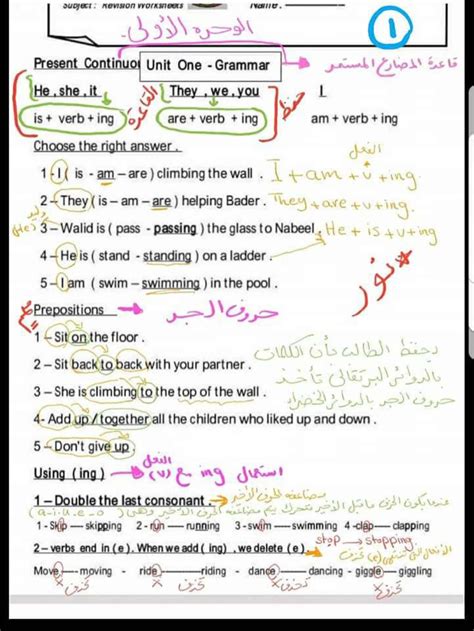 Subject : Revision Worksheets Name : .
الوحدة الأولى.
1
Present Continuou Unit One - Grammar قاعدة المضارع المستمر
He , she , it They , we , you I
القاعدة حفظ
is + verb + ing are + verb + ing am + verb + ing
Choose the right answer . الفعل
1 - I ( is - am – are ) climbing the wall . I + am + v + ing.
2 – They ( is – am – are ) helping Bader . They + are + v + ing.
وليد
(He) 3 – Walid is ( pass - passing ) the glass to Nabeel . He + is + v + ing
4 – He is ( stand - standing ) on a ladder .
5 – I am ( swim – swimming ) in the pool .
نور
Prepositions حروف الجر
1 – Sit on the floor .
2 – Sit back to back with your partner . يحفظ الطالب بأن الكلمات
3 – She is climbing to the top of the wall . بالدوائر البرتقالي تأخذ
4- Add up / together all the children who liked up and down . حروف الجر بالدوائر الخضراء
5 – Don't give up .
الفعل
Using ( ing ) (v) مع ing استعمال
1 – Double the last consonant . مضاعفة الحرف الأخير
(a - i - u - e - o)
1 - Skip --- skipping 2 - run ---- running 3 -swim -----swimming 4 -clap---- clapping
stop → stopping
2 – verbs end in ( e ) . When we add ( ing ) , we delete ( e ) .
Move ----moving - ride ----------riding - dance -------- dancing - giggle --- giggling
تحذف تحذف تحذف تحذف